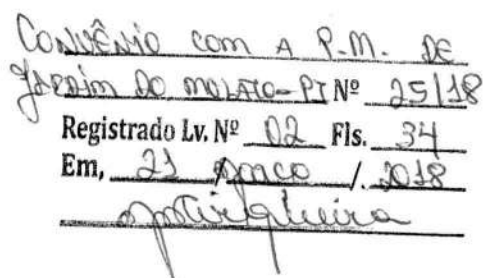 CONVÊNIO COM A P.M. DE
JARDIM DO MULATO-PI Nº 25/18
Registrado Lv. Nº 02 Fls. 34
Em, 21 / março / 2018